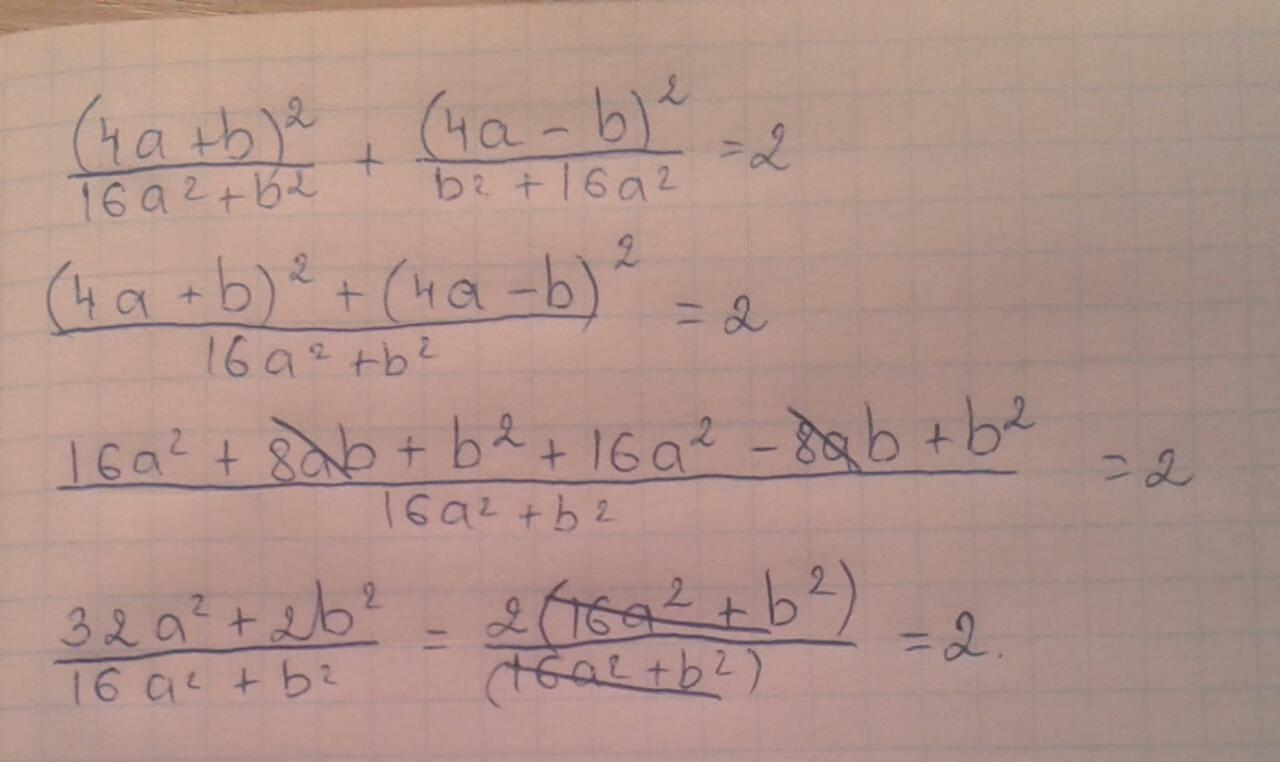 (4a+b)²/(16a²+b²) + (4a-b)²/(b²+16a²) =2
((4a+b)²+(4a-b)²)/(16a²+b²) =2
(16a²+8ab+b²+16a²-8ab+b²)/(16a²+b²) =2
(32a²+2b²)/(16a²+b²) = 2(16a²+b²)/(16a²+b²) =2.